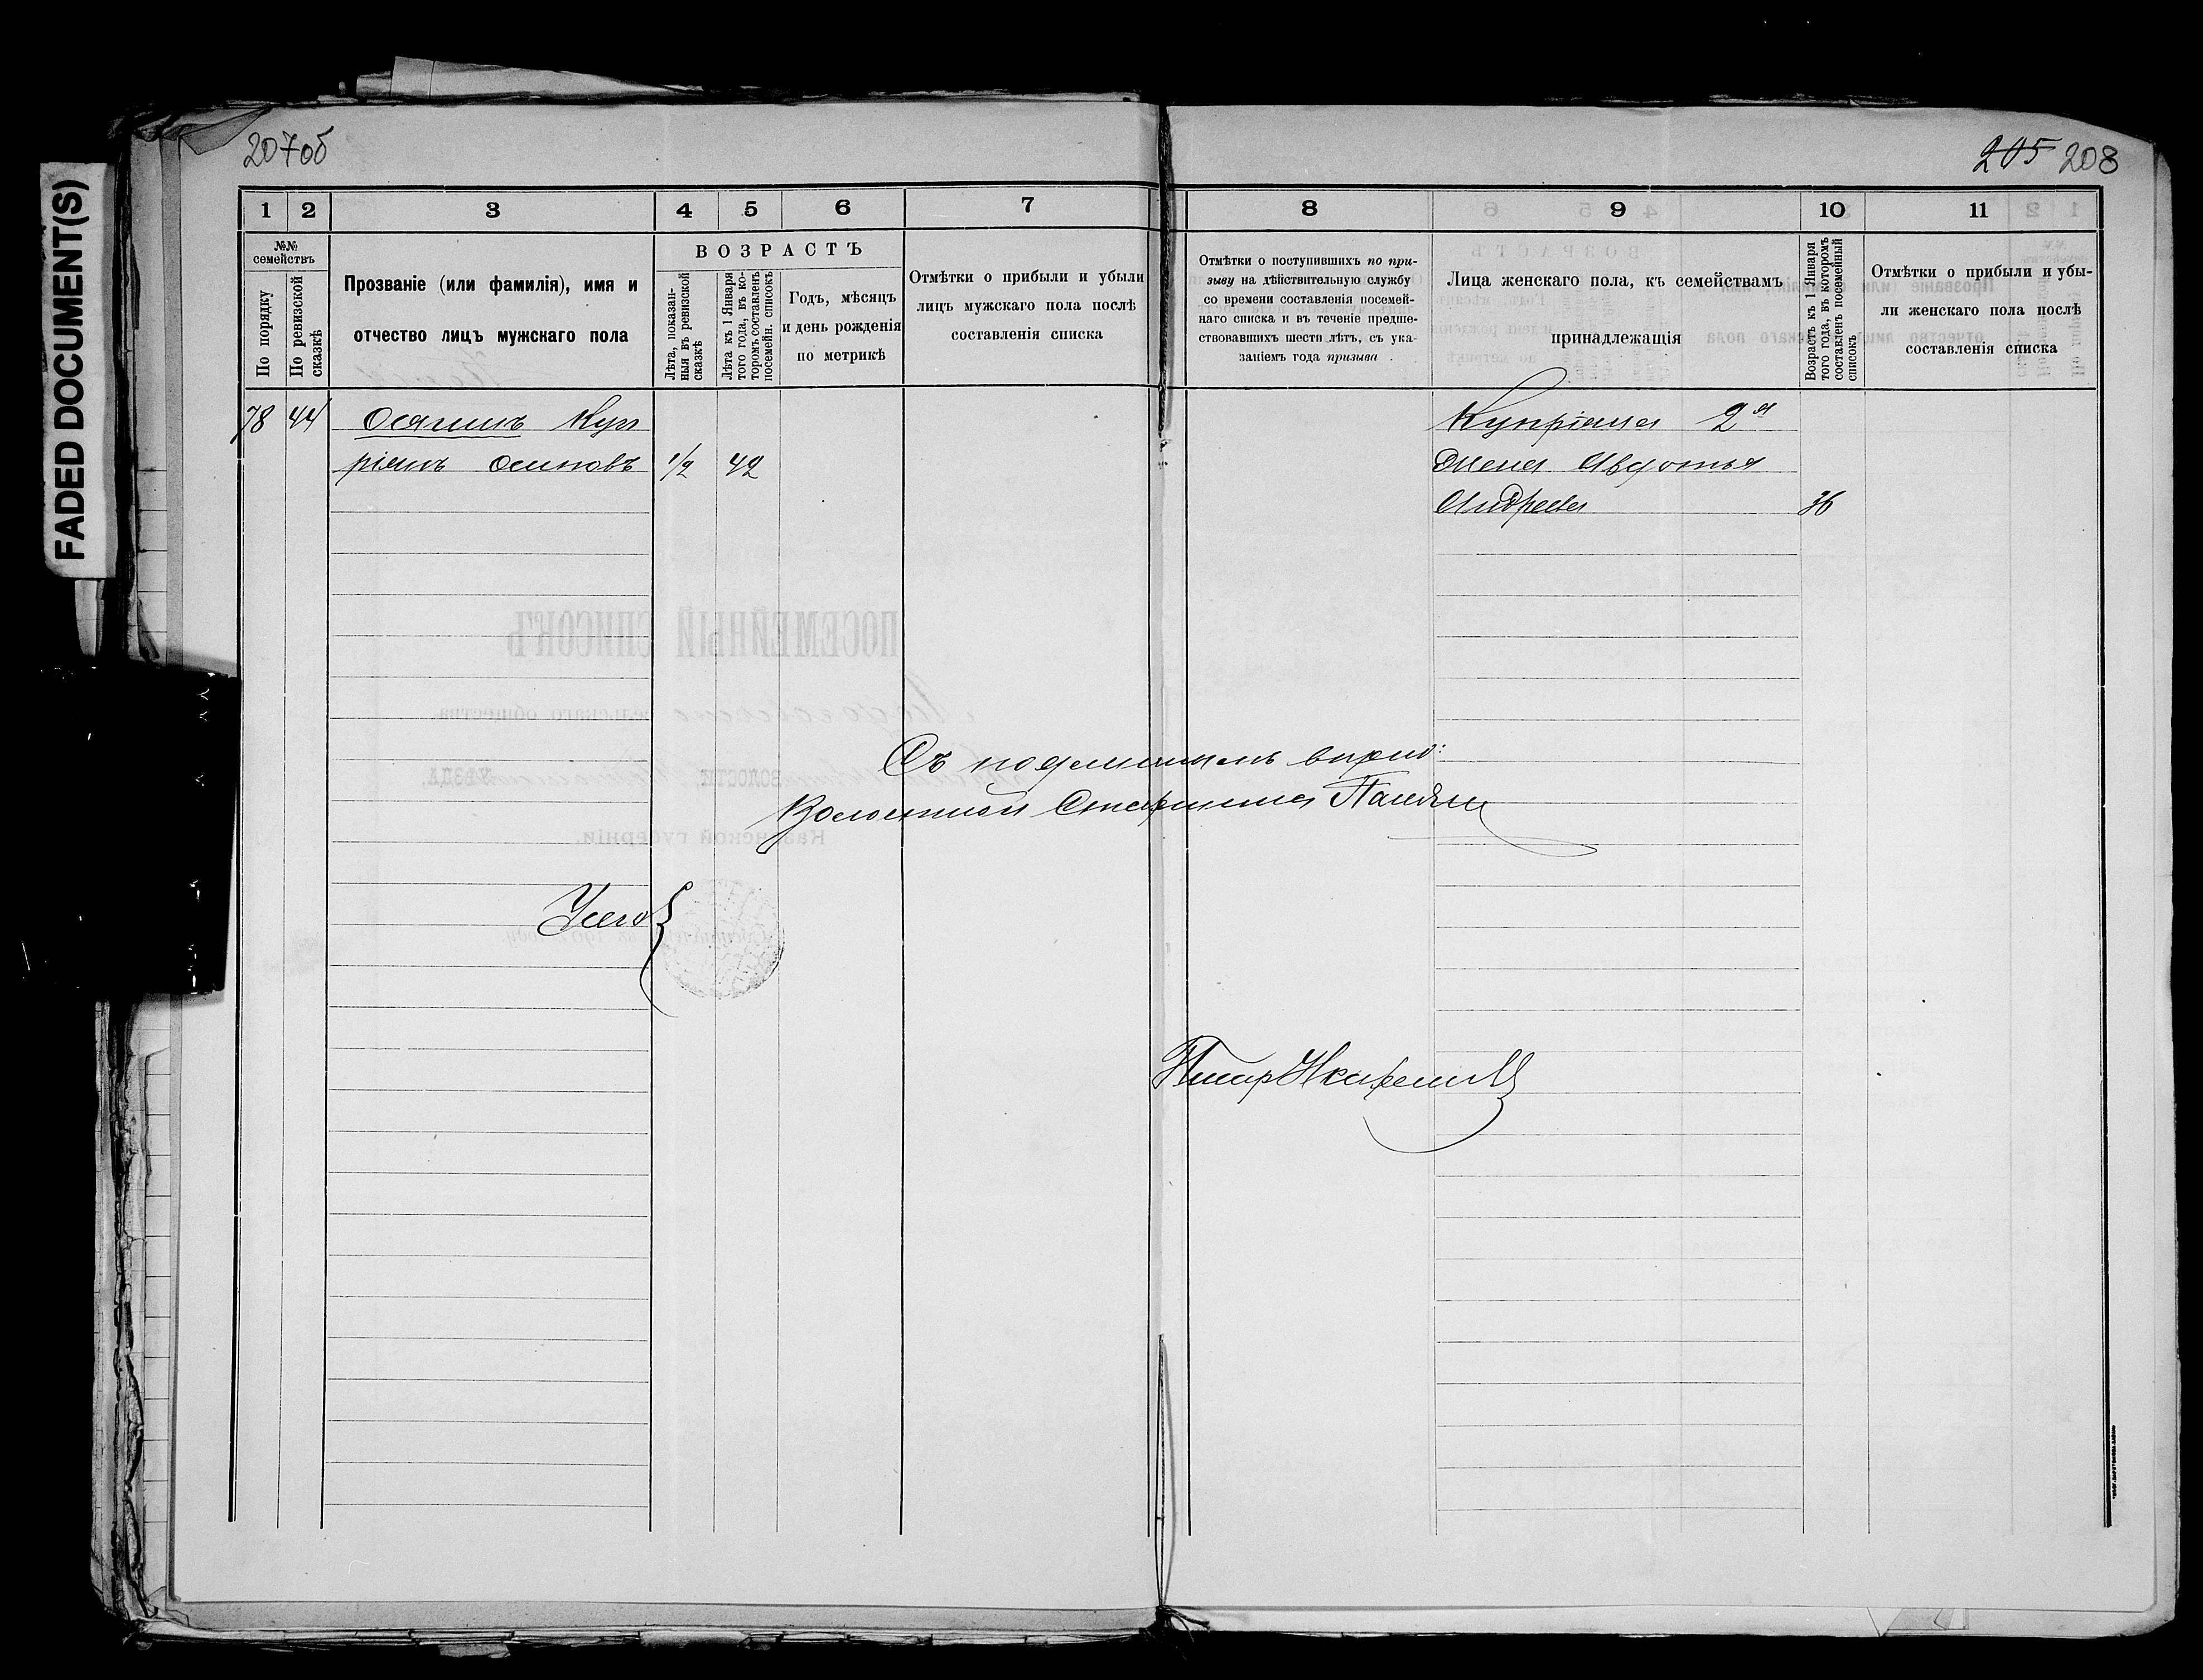 FADED DOCUMENT(S)
207об
205 208
1 2 3 4 5 6 7 8 9 10 11
№№ семействъ
По порядку
По ревизской сказкѣ
Прозваніе (или фамилія), имя и
отчество лицъ мужскаго пола
ВОЗРАСТЪ
Лѣта, показан-
ныя въ ревизской
сказкѣ
Лѣта къ 1 Января
того года, въ ко-
торомъ составленъ
посемейн. списокъ
Годъ, мѣсяцъ
и день рожденія
по метрикѣ
Отмѣтки о прибыли и убыли
лицъ мужскаго пола послѣ
составленія списка
Отмѣтки о поступившихъ по при-
зыву на дѣйствительную службу
со времени составленія посемей-
наго списка и въ теченіе предше-
ствовавшихъ шести лѣтъ, съ ука-
заніемъ года призыва.
Лица женскаго пола, къ семействамъ
принадлежащія
Возрастъ къ 1 Января
того года, въ которомъ
составленъ посемейный
списокъ
Отмѣтки о прибыли и убы-
ли женскаго пола послѣ
составленія списка
78 44 Осялинъ Куп
ріянъ Осиповъ 1/2 42
Купріяна 2я
жена Авдотья
Андреева 36
Съ подлиннымъ вѣрно:
Волостной Старшина
Писарь